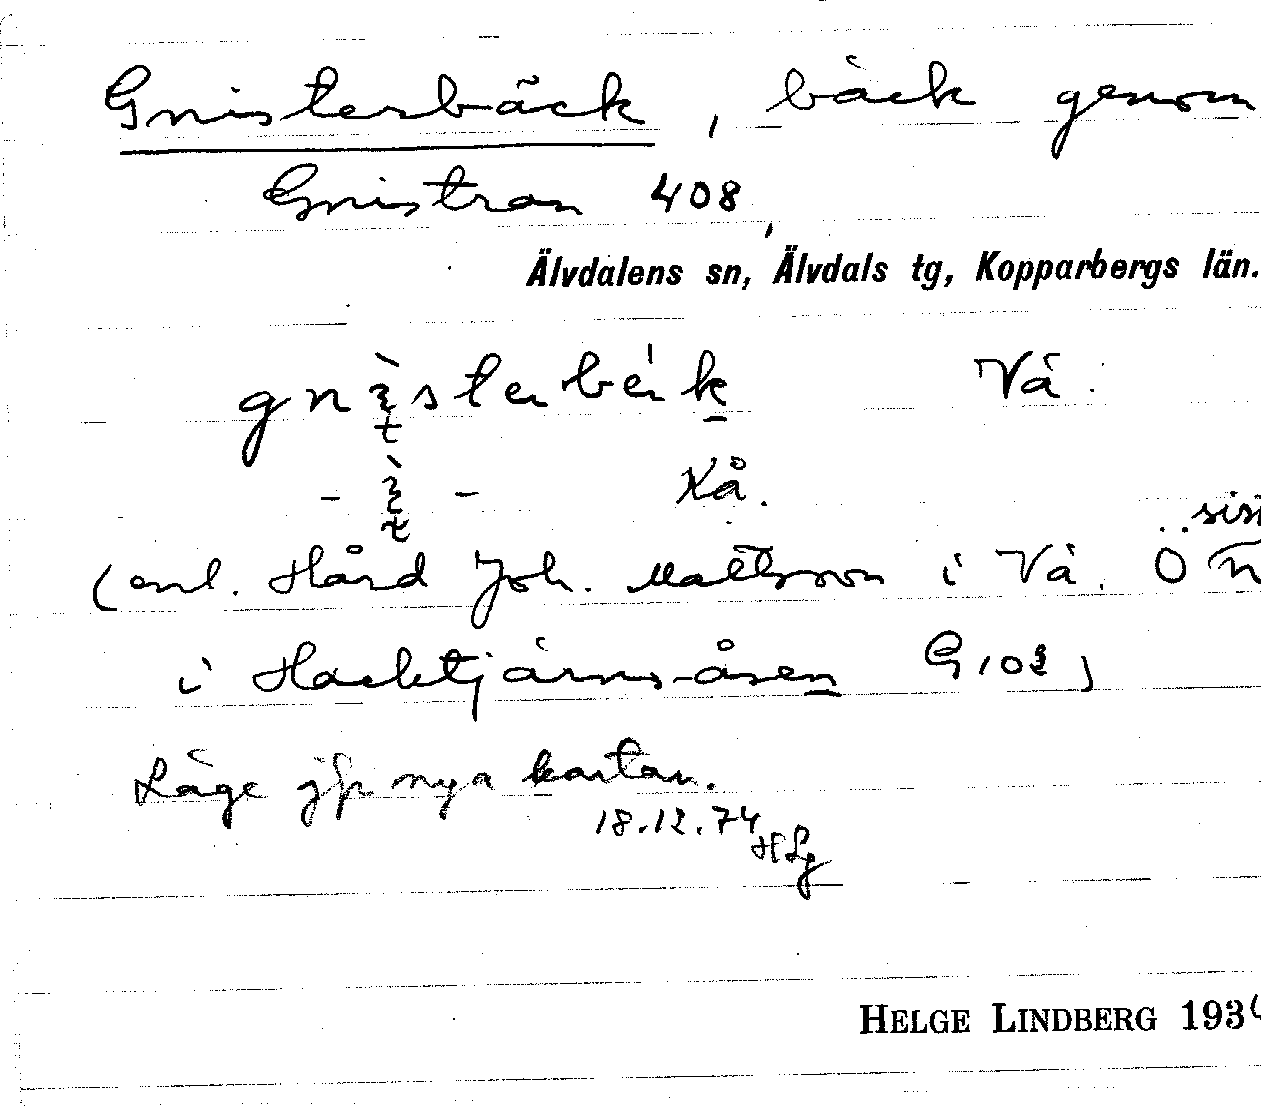 Gnisterbäck, bäck genom
Gnistran 408,
Älvdalens sn, Älvdals tg, Kopparbergs län.
Vå.
- - Kå.
(enl. Hård Joh. Mattsson i Vå. Ö
i Hacktjärnsåsen G 103)
Läge jfr nya kartan.
18.12.74
HLg
HELGE LINDBERG 193